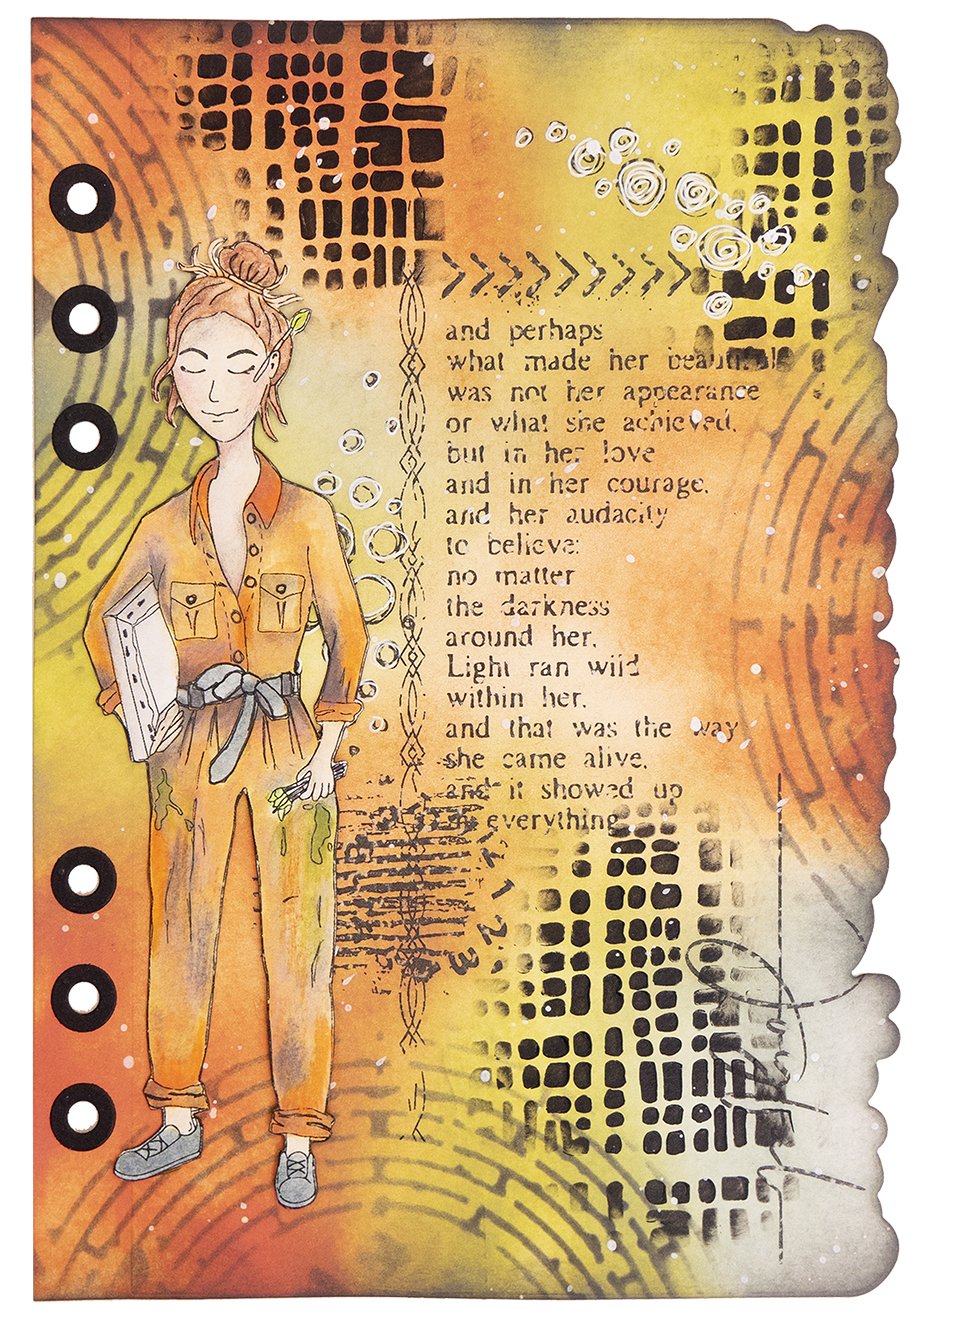 and perhaps
what made her beautiful
was not her appearance
or what she achieved,
but in her love
and in her courage,
and her audacity
to believe:
no matter
the darkness
around her,
Light ran wild
within her,
and that was the way
she came alive,
and it showed up
in everything.
1 2 3